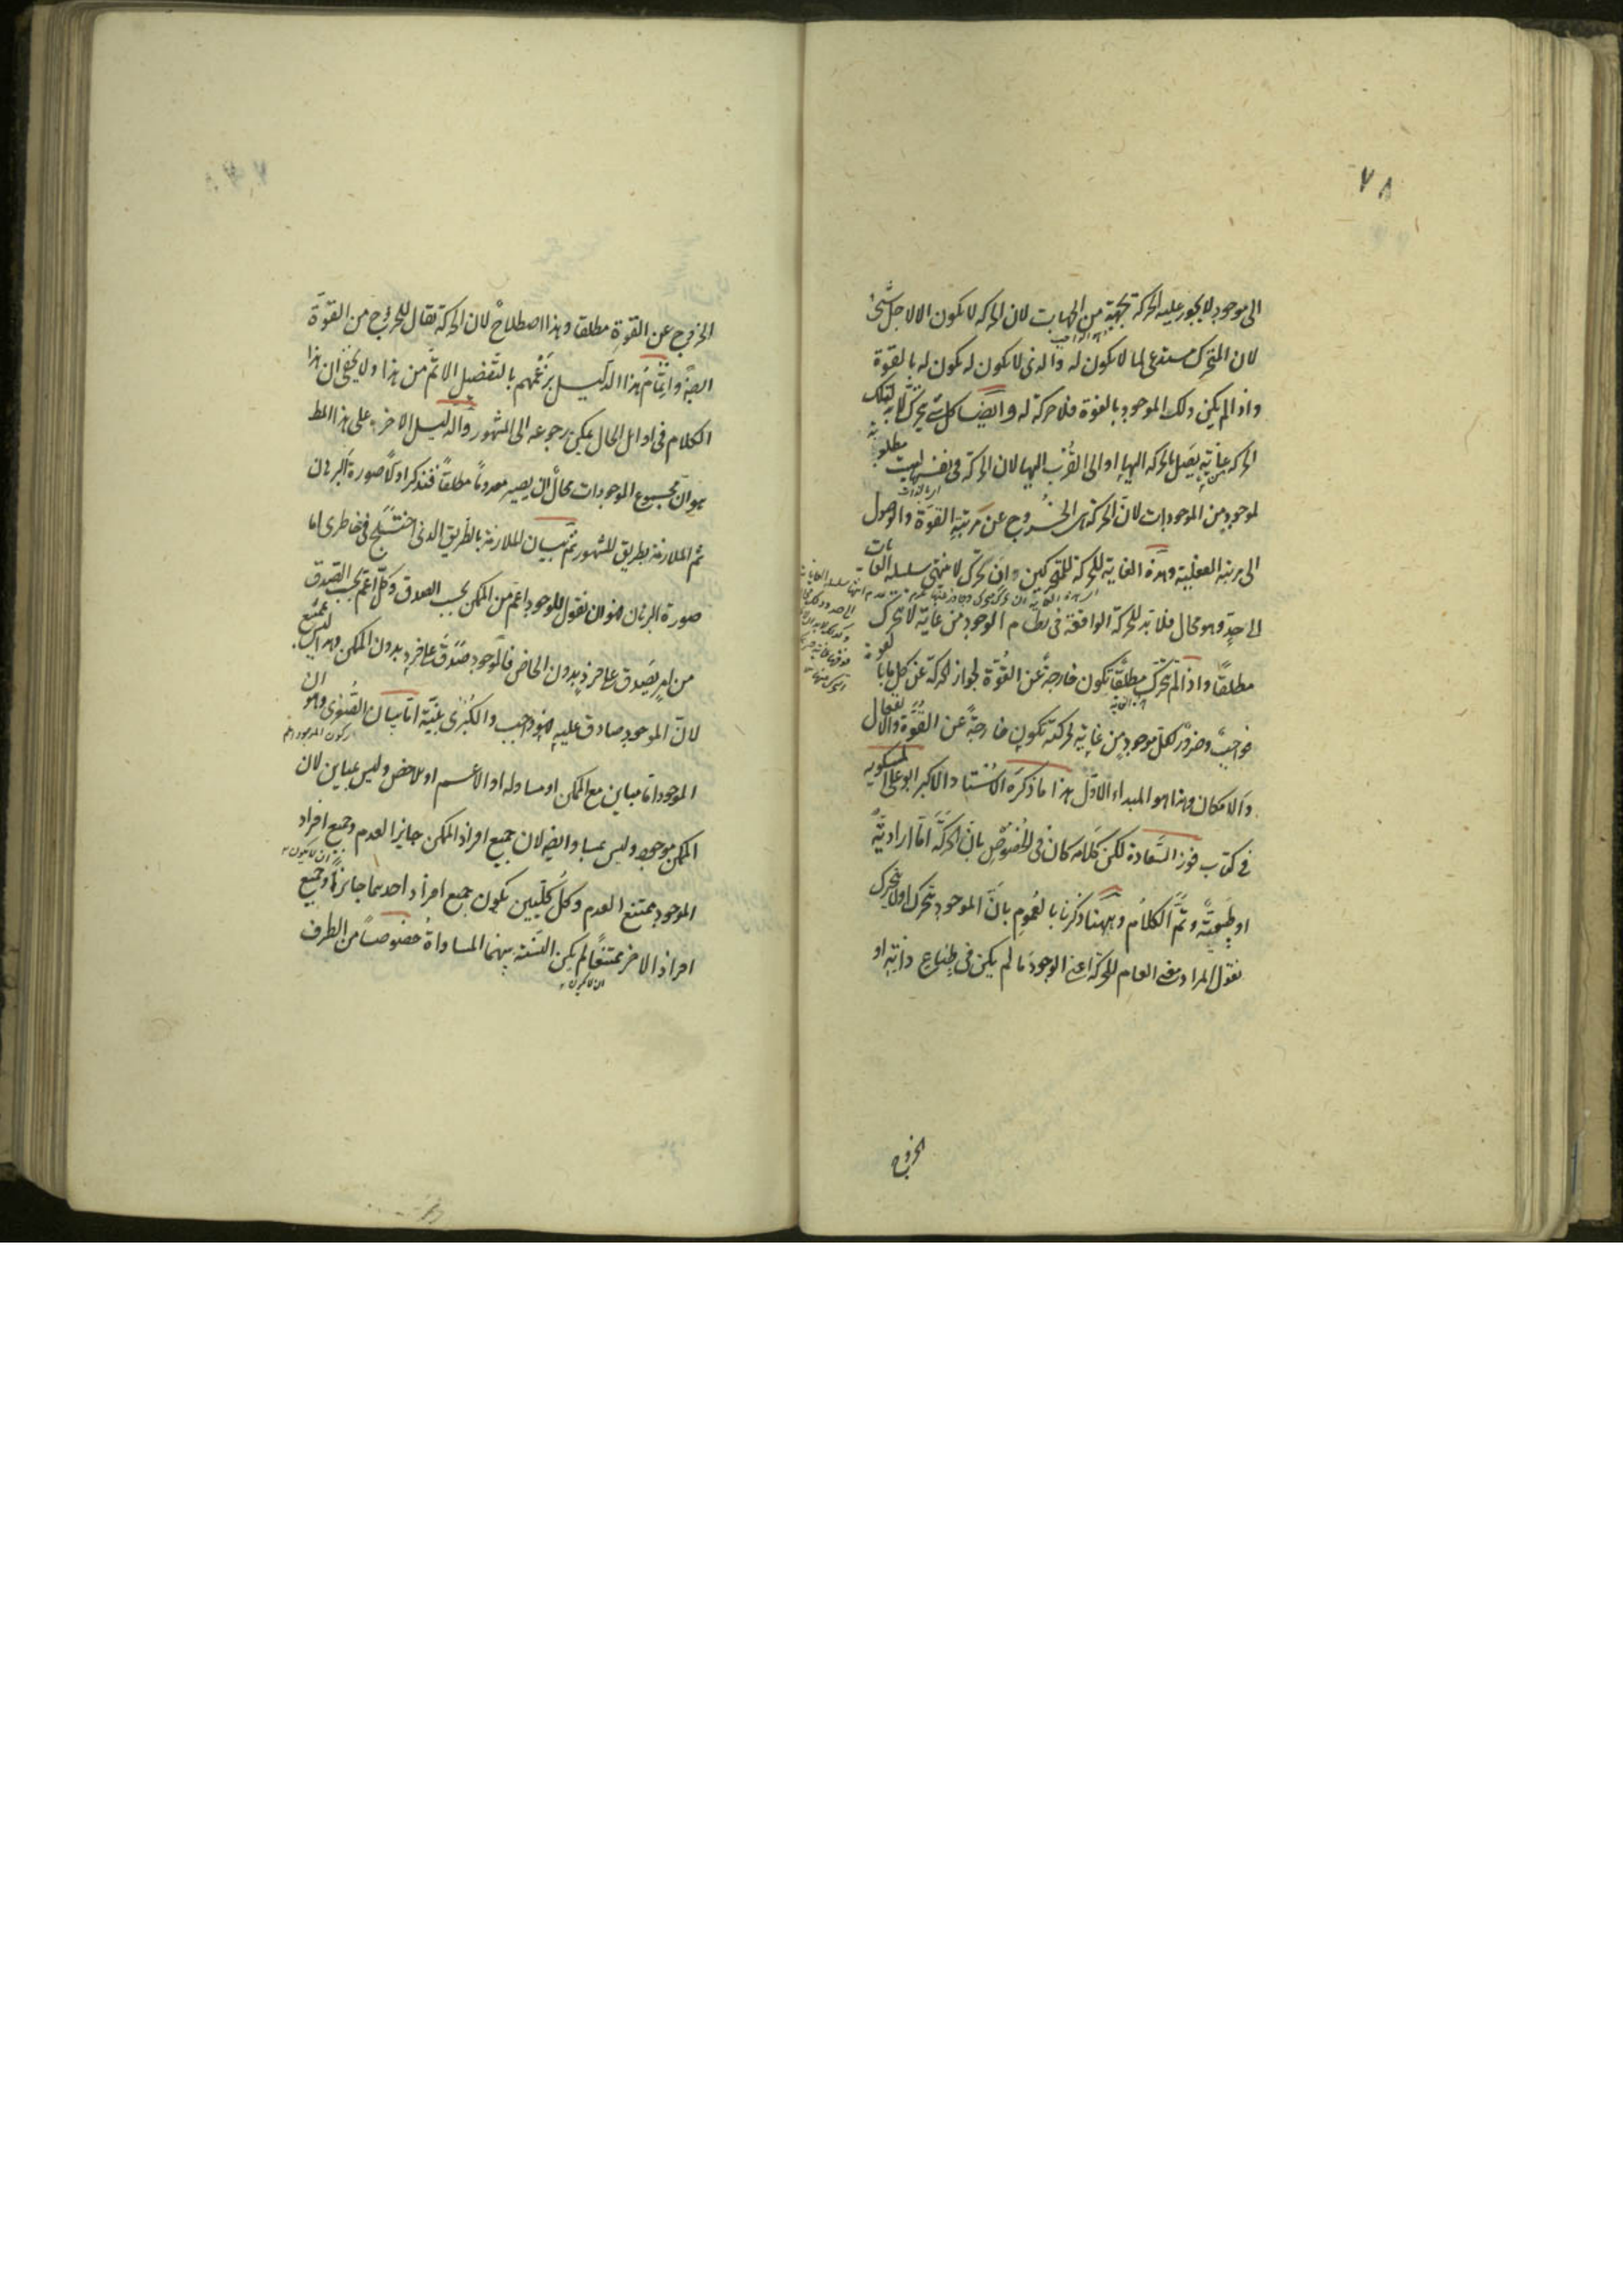 ٧٨
الى موجود لا يجوز عليه الحركة بجهة من الجهات لان الحركة لا يكون الا لاجل شئ
لان المتحرك مستدعى لما لا يكون له والذى لا يكون له يكون له بالقوة
واذا لم يكن ذلك الموجود بالقوة فلا حركة له وايضا كل شئ يتحرك لا بد لتلك
الحركة غاية يصل بالحركة اليها او الى القرب اليها لان الحركة فى نفسها ليست مطلوبة
لموجود من الموجودات لان الحركة هى الخروج عن مرتبة القوة والوصول
الى مرتبة الفعلية وهذه الغاية للحركة للمتحركين وان تحرك لا ينتهى سلسلة الغايات
الى حد وهو محال فلا بد للحركة الواقعة فى نظام الوجود من غاية لا يتحرك
مطلقا واذا لم يتحرك مطلقا تكون خارجة عن القوة لجواز الحركة عن كل ما بالقوة
فواجب وضرور لكل موجود من غاية لحركته تكون خارجة عن القوة والانفعال
والامكان وهذا هو المبداء الاول هذا ما ذكره الاستاد الاكبر ابو على المسكويه
فى كتاب فوز السعادة لكن كلامه كان فى الخصوص بان الحركة اما ارادية
او طبيعية وتم الكلام وههنا ذكرنا بالعموم بان الموجود يتحرك اولا يتحرك
نقول المراد معنى العام للحركة اعنى الوجود ما لم يكن فى طباع ذاته او
الخروج
الخروج عن القوة مطلقا وهذا اصطلاح لان الحركة تقال للخروج من القوة
ايضا واتمام هذا الدليل بزعمهم بالتفصيل الاتم من هذا ولا يخفى ان هذا
الكلام فى اوائل الحال يمكن رجوعه الى المشهور والدليل الاخر على هذا المط
هو ان مجموع الموجودات محال ان يصير معدوما مطلقا فنذكر اولا صورة البرهان
ثم الملازمة بطريق المشهور ثم بيان الملازمة بالطريق الذى اختلج فى خاطرى اما
صورة البرهان فهو ان نقول الموجود اعم من الممكن بحسب الصدق وكل اعم بحسب الصدق
من امر يصدق على فرد بدون الخاص فالموجود صدق على فرد بدون الممكن وهذا ليس بممتنع
لان الموجود صادق عليه فهو واجب والكبرى بينة اما بيان الصغرى وهو ان
الموجود اما مباين مع الممكن او مساو له او الاعم او الاخص وليس بمباين لان
الممكن موجود وليس بمساو ايضا لان جميع افراد الممكن جايز العدم وجميع افراد
الموجود ممتنع العدم وكل كليين يكون جميع افراد احدهما جايزا وجميع
افراد الاخر ممتنعا لم يكن البتة بينهما المساواة خصوصا من الطرف